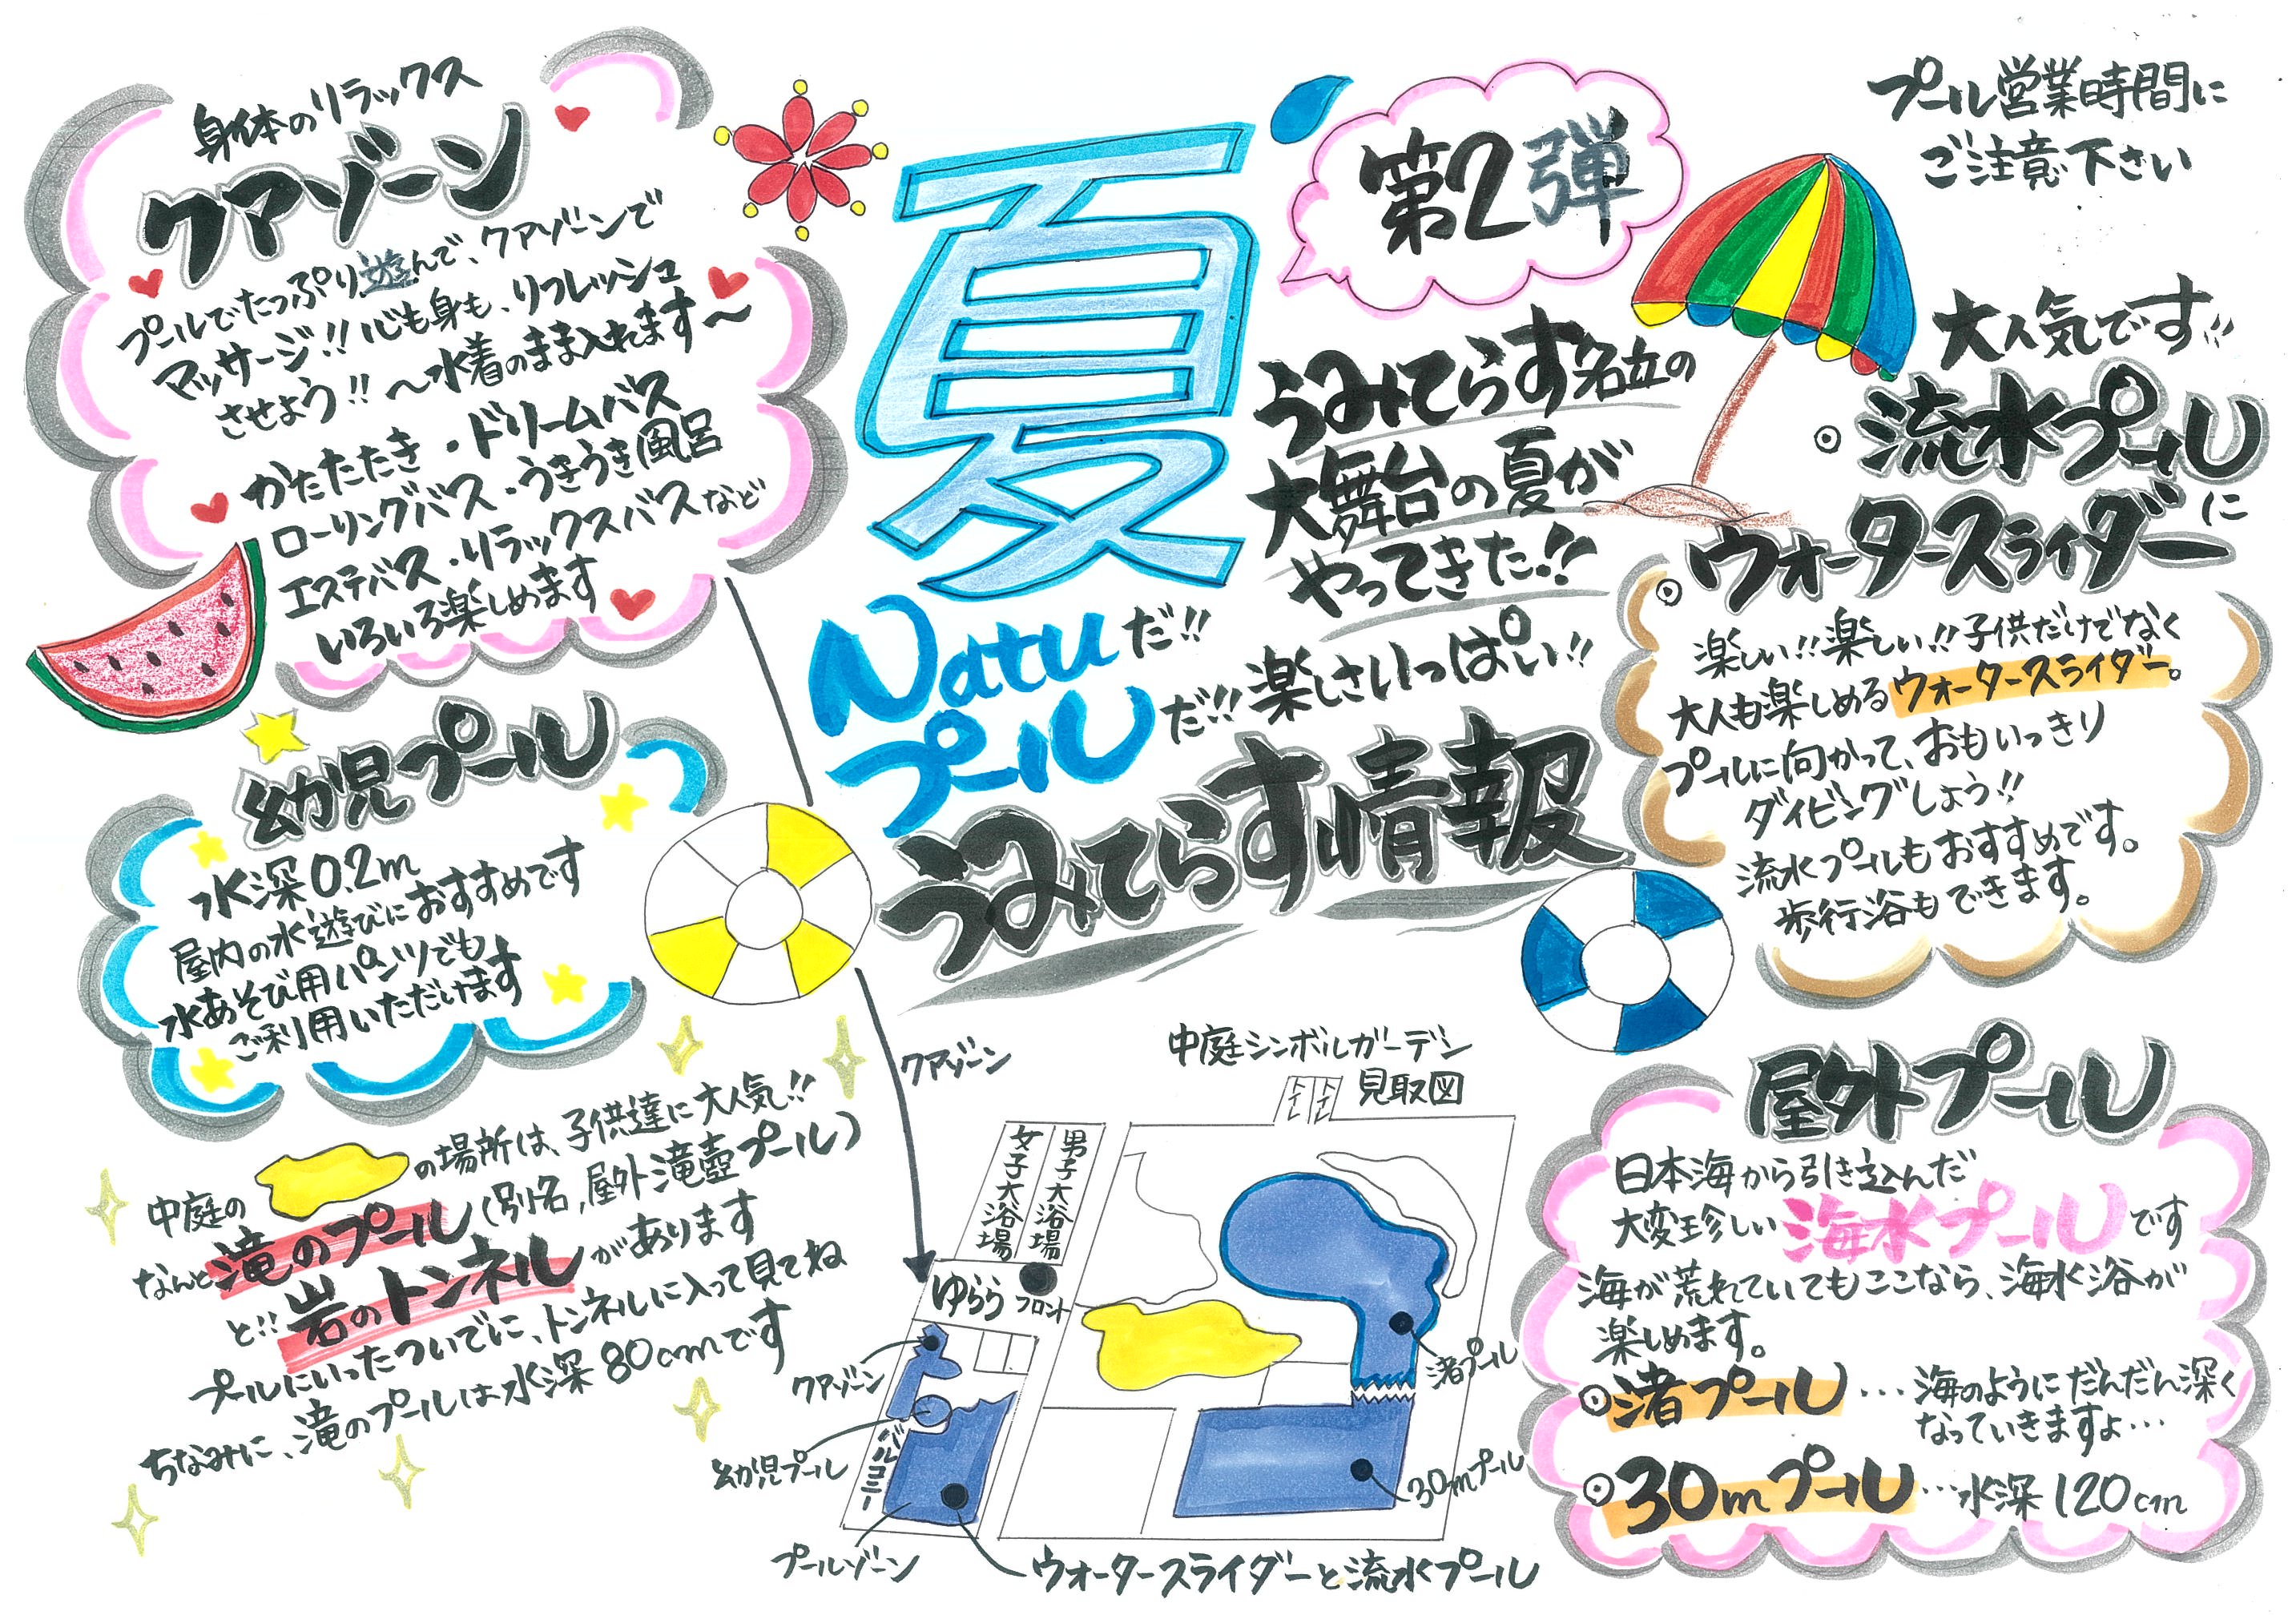 身体のリラックス
クアゾーン
プールでたっぷり遊んで、クアゾーンで
マッサージ!!心も身も、リフレッシュ
させよう!!～水着のまま入れます～
かたたたき・ドリームバス
ローリングバス・うきうき風呂
エステバス・リラックスバスなど
いろいろ楽しめます
夏
第2弾
うみてらす名立の
大舞台の夏が
やってきた!!
Natuだ!!
プールだ!!楽しさいっぱい!!
うみてらす情報
プール営業時間に
ご注意下さい
大人気です!!
◎流水プールに
◎ウォータースライダー
楽しい!!楽しい!!子供だけでなく
大人も楽しめるウォータースライダー。
プールに向かって、おもいっきり
ダイビングしよう!!
流水プールもおすすめです。
歩行浴もできます。
幼児プール
水深0.2m
屋内の水遊びにおすすめです
水あそび用パンツでも
ご利用いただけます
中庭の の場所は、子供達に大人気!!
なんと滝のプール(別名,屋外滝壺プール)
と!!岩のトンネルがあります
プールにいったついでに、トンネルに入って見てね
ちなみに、滝のプールは水深80cmです
クアゾーン
中庭シンボルガーデン
見取図
トイレ
トイレ
女子大浴場
男子大浴場
ゆらら
フロント
クアゾーン
幼児プール
バルコニー
プールゾーン
ウォータースライダーと流水プール
渚プール
30mプール
屋外プール
日本海から引き込んだ
大変珍しい海水プールです
海が荒れていてもここなら、海水浴が
楽しめます。
◎渚プール…海のようにだんだん深く
なっていきますよ…
◎30mプール…水深120cm